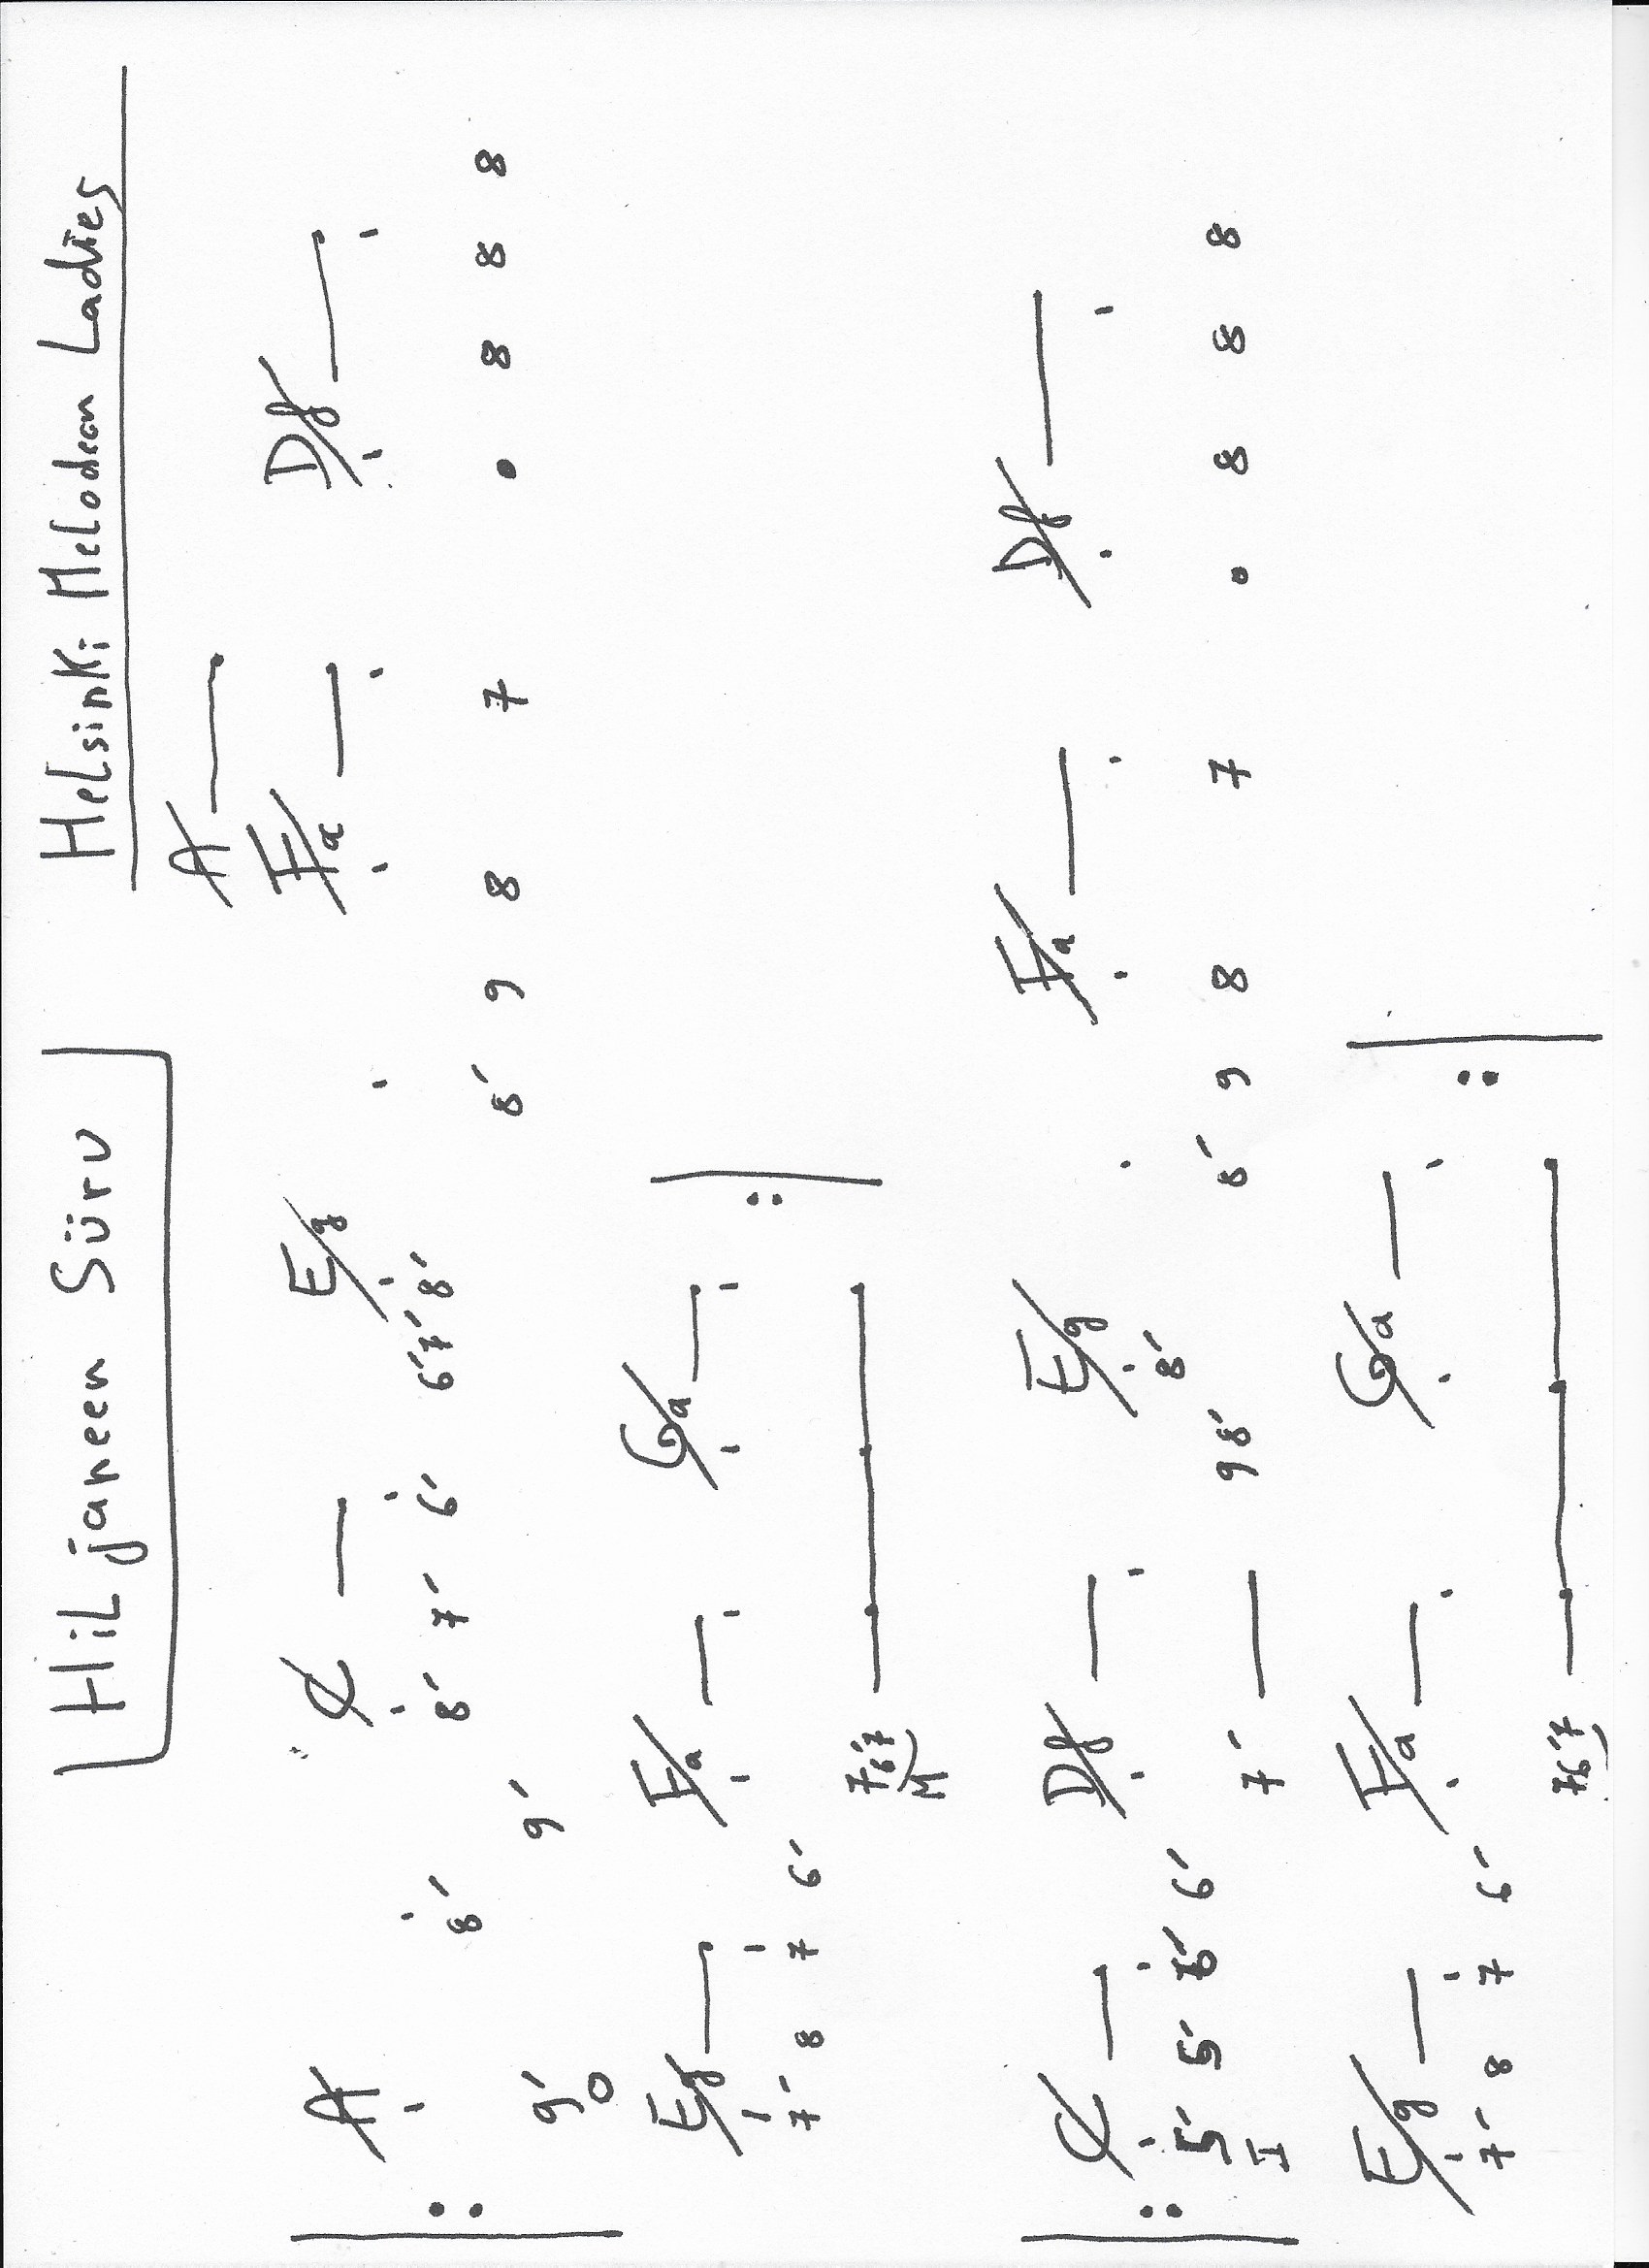 Hiljaneen Süru Helsinki Melodeon Ladies
A —
A C — E/g F/a — D/f —
8' 8' 7' 6' 6'7'8'
9' 9' 8' 9 8 7 • 8 8 8
O
E/g — F/a — G/a —
7' 8 7 6'
76'7 —
M
C — D/f — E/g F/a — D/f —
5' 5' 6' 6' 8'
I 7' — 98' 8' 9 8 7 • 8 8 8
E/g — F/a — G/a —
7' 8 7 6'
76'7 —